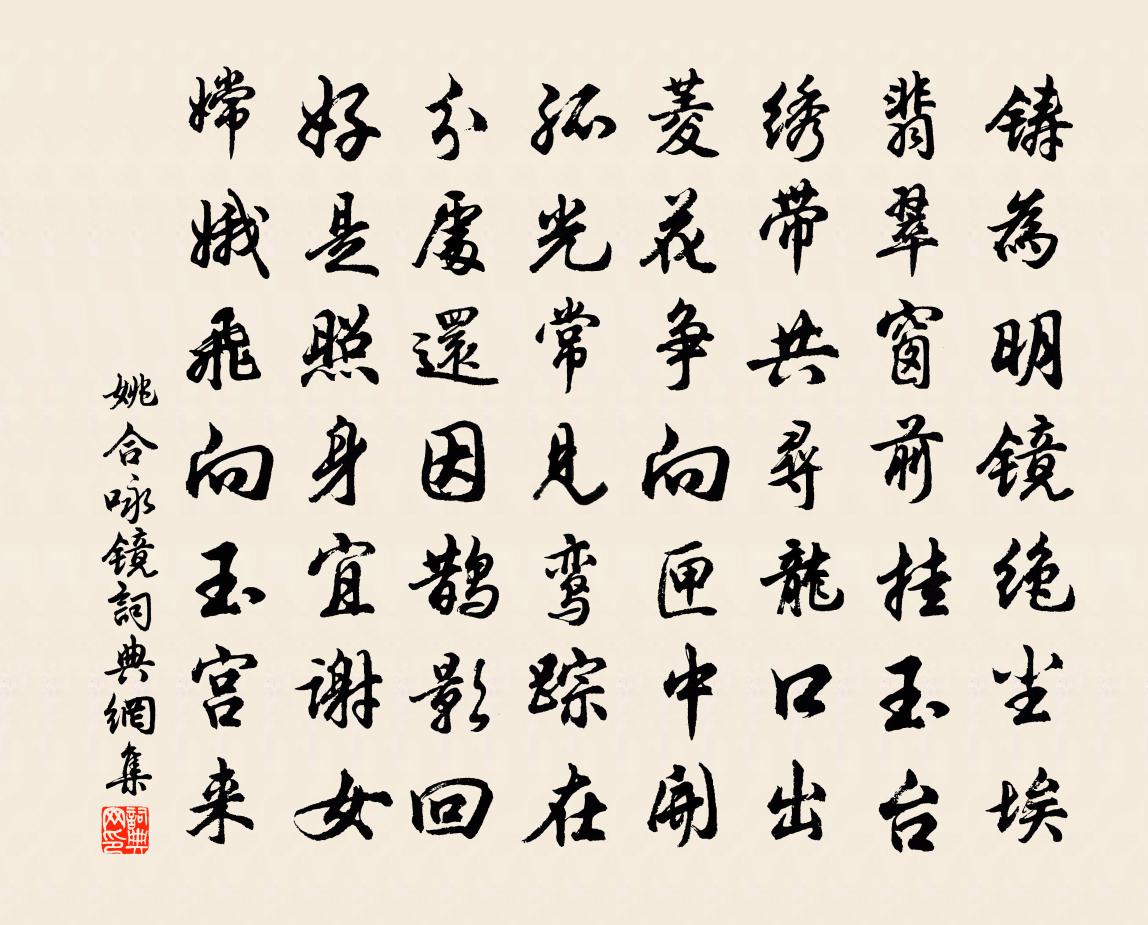 铸為明镜绝尘埃
翡翠窗前挂玉台
绣带共尋龍口出
菱花争向匣中開
孤光常見鸾踪在
分處還因鹊影回
好是照身宜谢女
嫦娥飛向玉宫来
姚合咏镜詞典網集
詞典网印